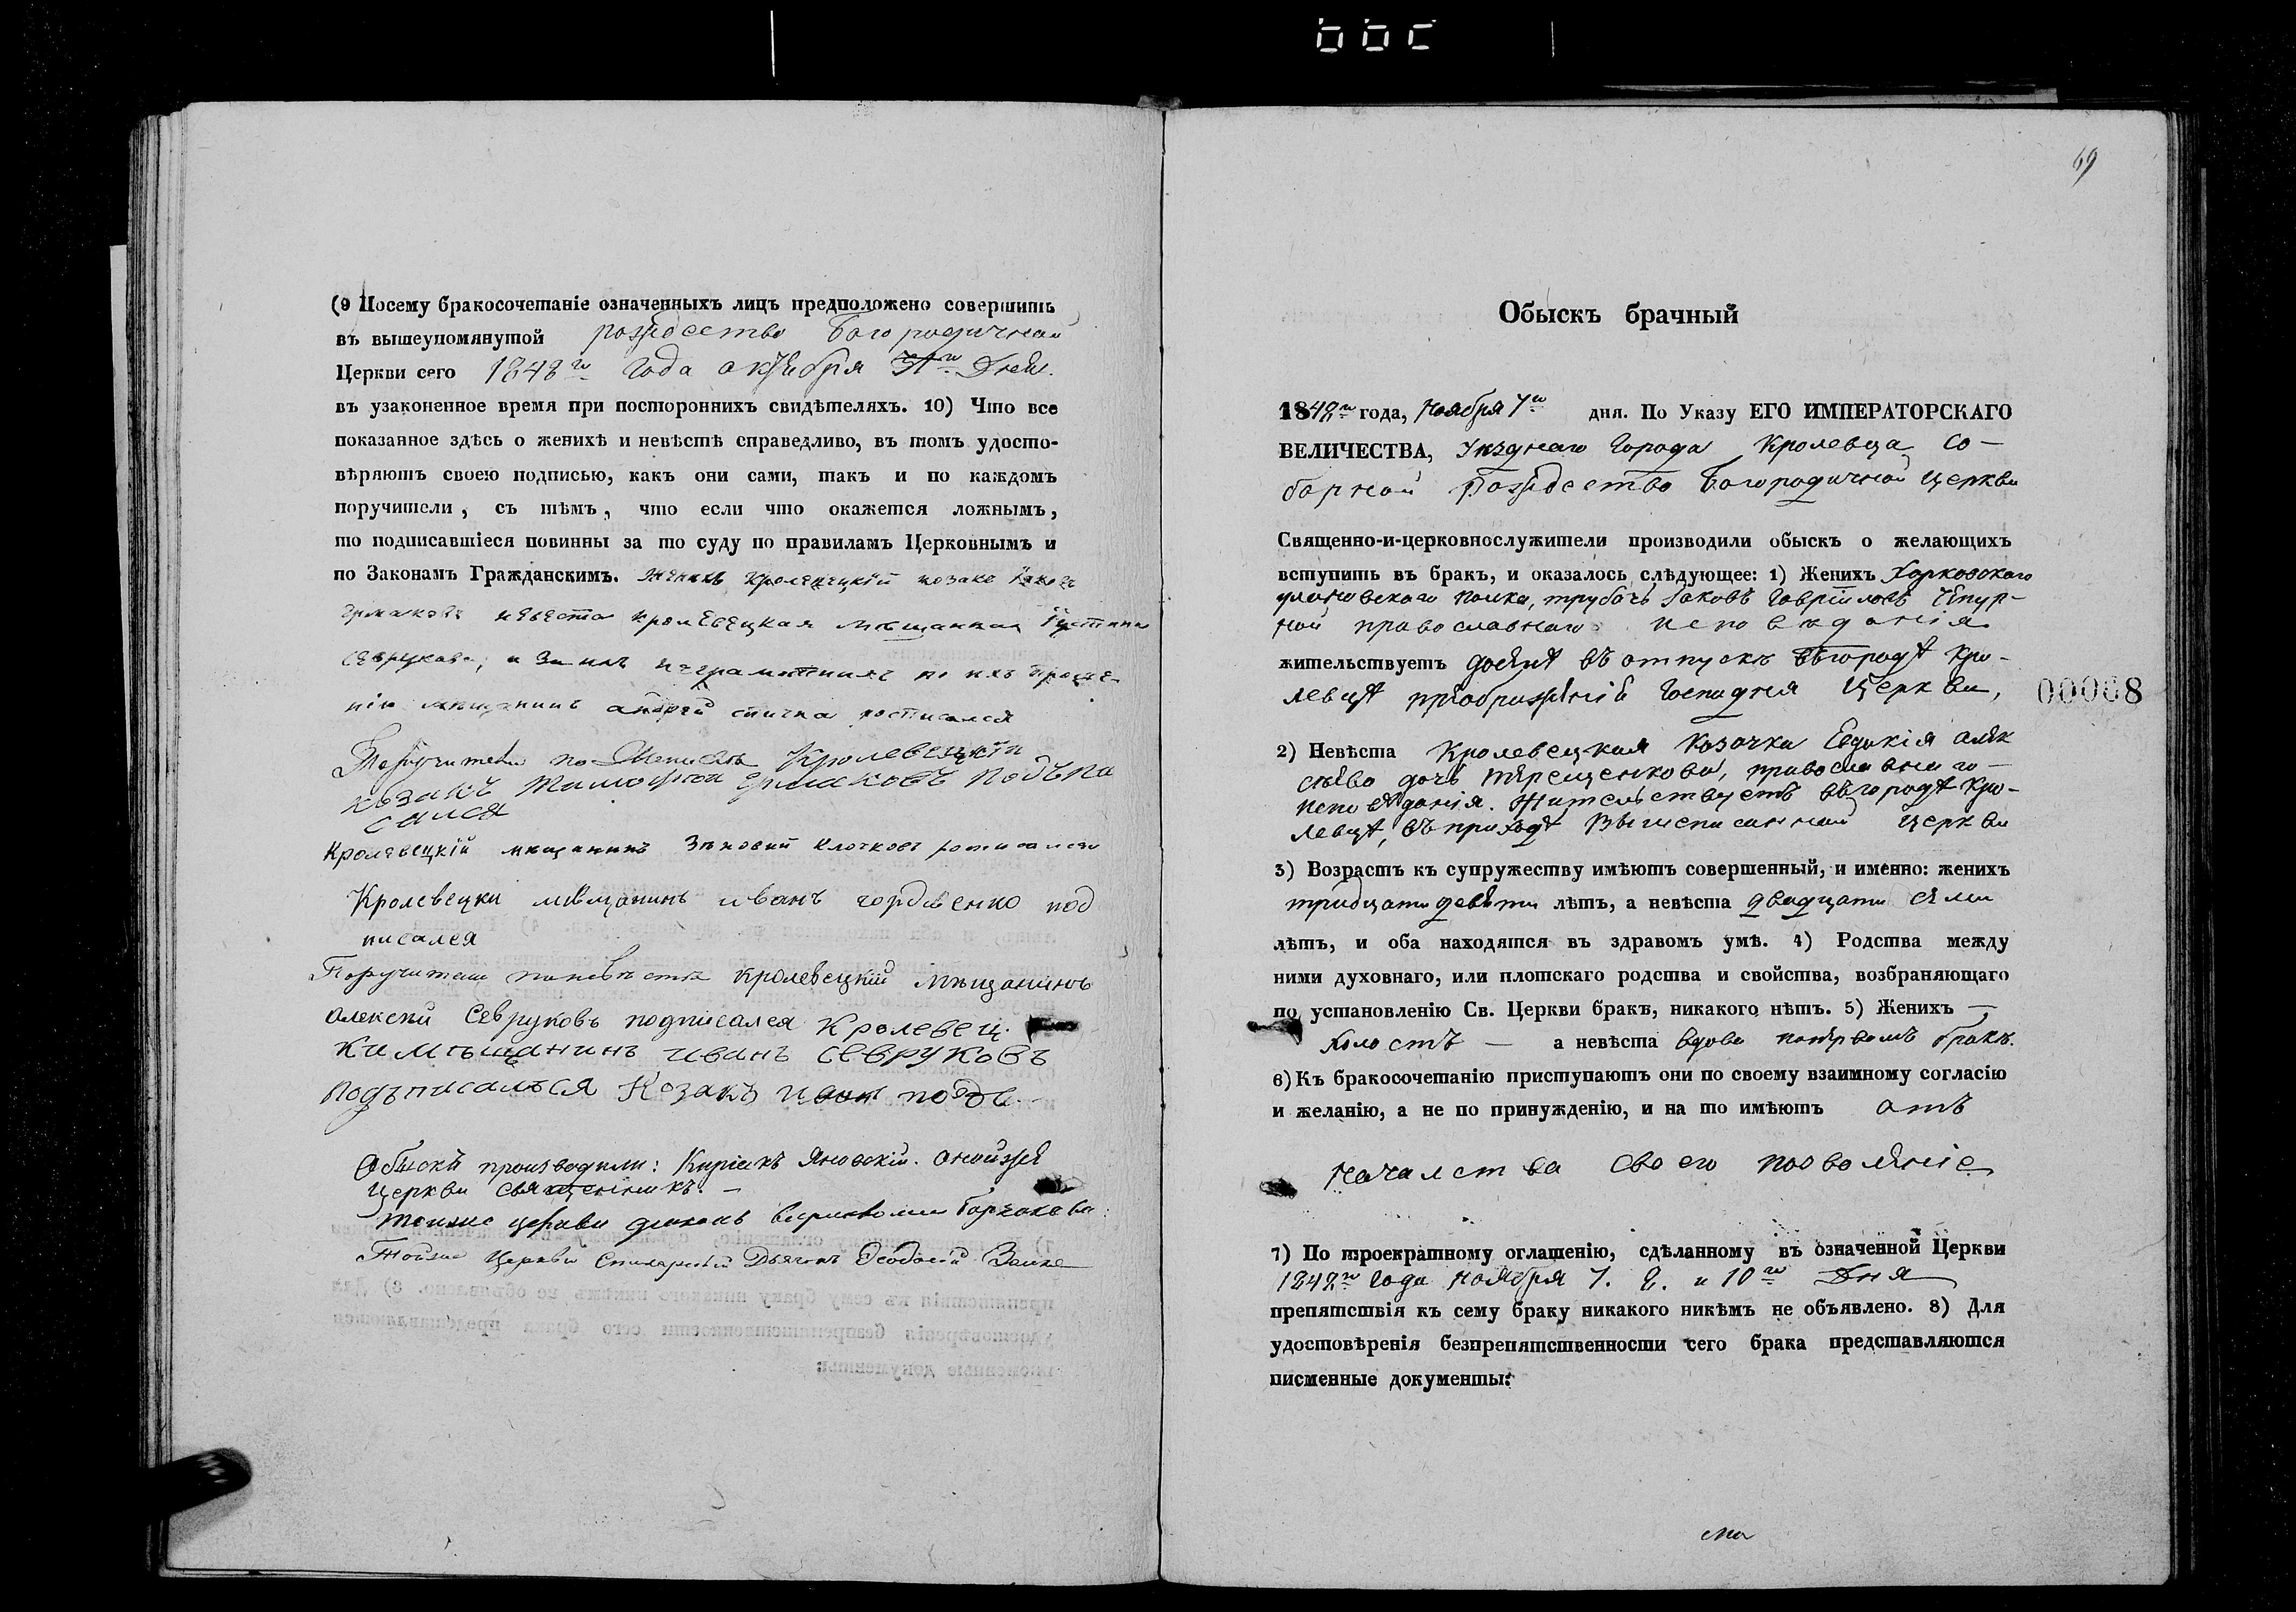 (9 Посему бракосочетаніе означенныхъ лицъ предположено совершить
въ вышеупомянутой рождество Богородичной
Церкви сего 1848го года октября дня.
въ узаконенное время при постороннихъ свидѣтеляхъ. 10) Что все
показанное здѣсь о женихѣ и невѣстѣ справедливо, въ томъ удосто-
вѣряютъ своею подписью, какъ они сами, такъ и по каждомъ
поручители, съ тѣмъ, что если что окажется ложнымъ,
то подписавшіеся повинны за то суду по правиламъ Церковнымъ и
по Законамъ Гражданскимъ. Женихъ кролевецкій козакъ
Ермаковъ невѣста кролевецкая мѣщанка Іустина
Севрукова, а за ихъ неграмотныхъ по ихъ проше-
нію мѣщанинъ андрей спичка росписался
Поручители по Женихѣ Кролевецкій
козакъ Тимофей Ермаковъ подъпи
сался
Кролевецкій мѣщанинъ Зѣновій Клочковъ росписался
Кролевецки мѣщанинъ иванъ гордѣенко под
писался
Поручители поневѣстѣ кролевецкій мѣщанинъ
алексѣй Севруковъ подписался Кролевец
ки мѣщанинъ иванъ севруковъ
подъписалъся Козакъ иванъ
Обыскъ производили: Киріакъ Яновскій. оной же
Церкви священникъ. —
тоиже церкви
Тойже Церкви Дьячокъ Ѳеодосій Заика
69
Обыскъ брачный
1848го года, Ноября 7го дня. По Указу ЕГО ИМПЕРАТОРСКАГО
ВЕЛИЧЕСТВА, Уѣзднаго Города Кролевца Со-
борной Рождество Богородичной Церкви
Священно-и-церковнослужители производили обыскъ о желающихъ
вступить въ бракъ, и оказалось слѣдующее: 1) Женихъ Харковского
уланского полка, трубачъ Іаковъ Гавріиловъ Чпур-
ной православнаго исповѣданія
жительствуетъ въ отпускѣ вѣгородѣ Кро-
левцѣ Господня Церкви,
00068
2) Невѣста Кролевецкая Козачка Евдокія алек
сѣева дочь терещенкова, православнаго —
исповѣданія. Жительствуетъ вѣгородѣ Кро-
левцѣ, въ приходѣ Вышеписанной Церкви
3) Возрастъ къ супружеству имѣютъ совершенный, и именно: женихъ
тридцати девяти лѣтъ, а невѣста двадцати семи
лѣтъ, и оба находятся въ здравомъ умѣ. 4) Родства между
ними духовнаго, или плотскаго родства и свойства, возбраняющаго
по установленію Св. Церкви бракъ, никакого нѣтъ. 5) Женихъ —
холостъ — а невѣста вдова попервомъ бракѣ.
6) Къ бракосочетанію приступаютъ они по своему взаимному согласію
и желанію, а не по принужденію, и на то имѣютъ отъ
началства своего позволеніе
7) По троекратному оглашенію, сдѣланному въ означенной Церкви
1848го года ноября 7. 8. и 10го Дня
препятствія къ сему браку никакого никѣмъ не объявлено. 8) Для
удостовѣренія безпрепятственности сего брака представляются
писменные документы: